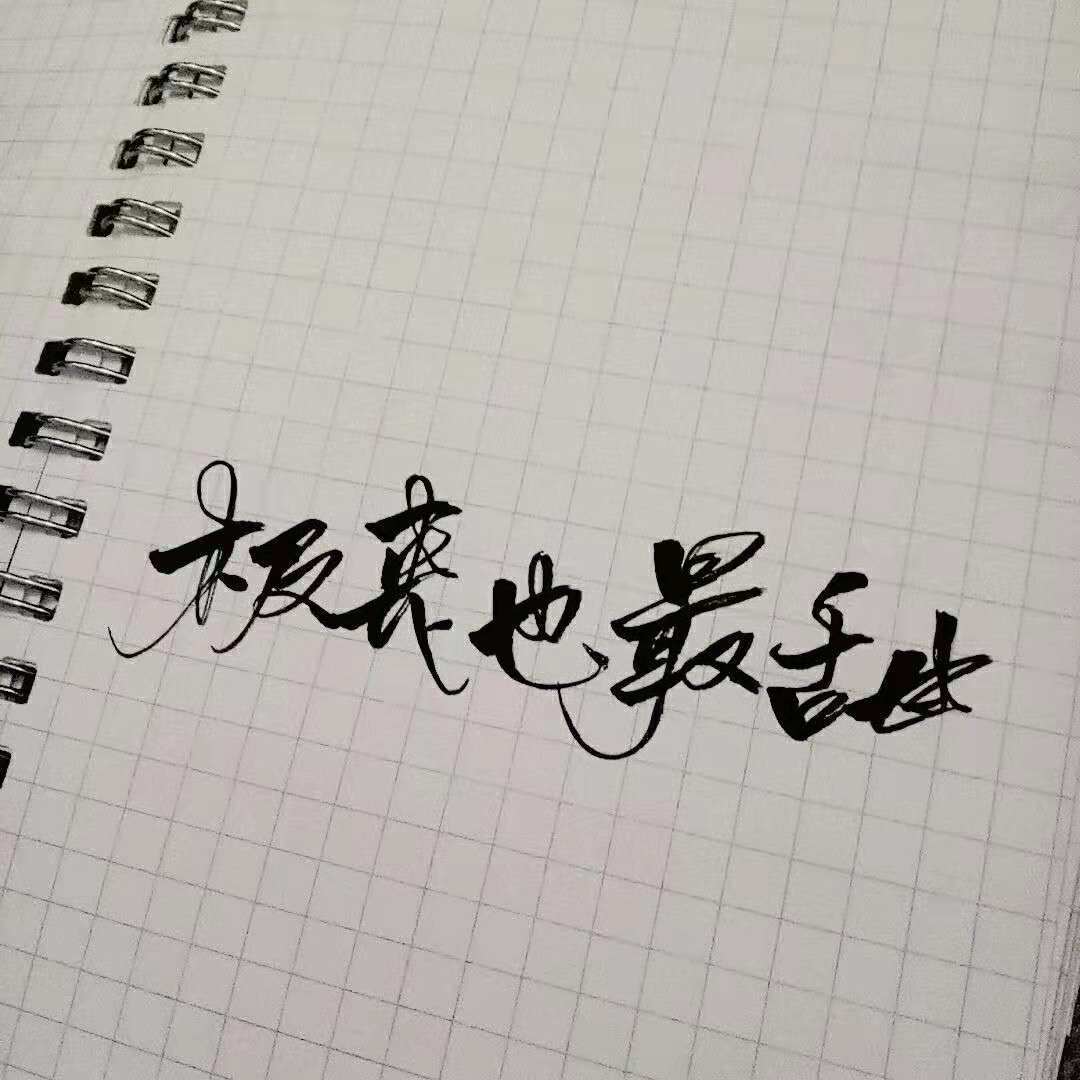 极丧也最甜